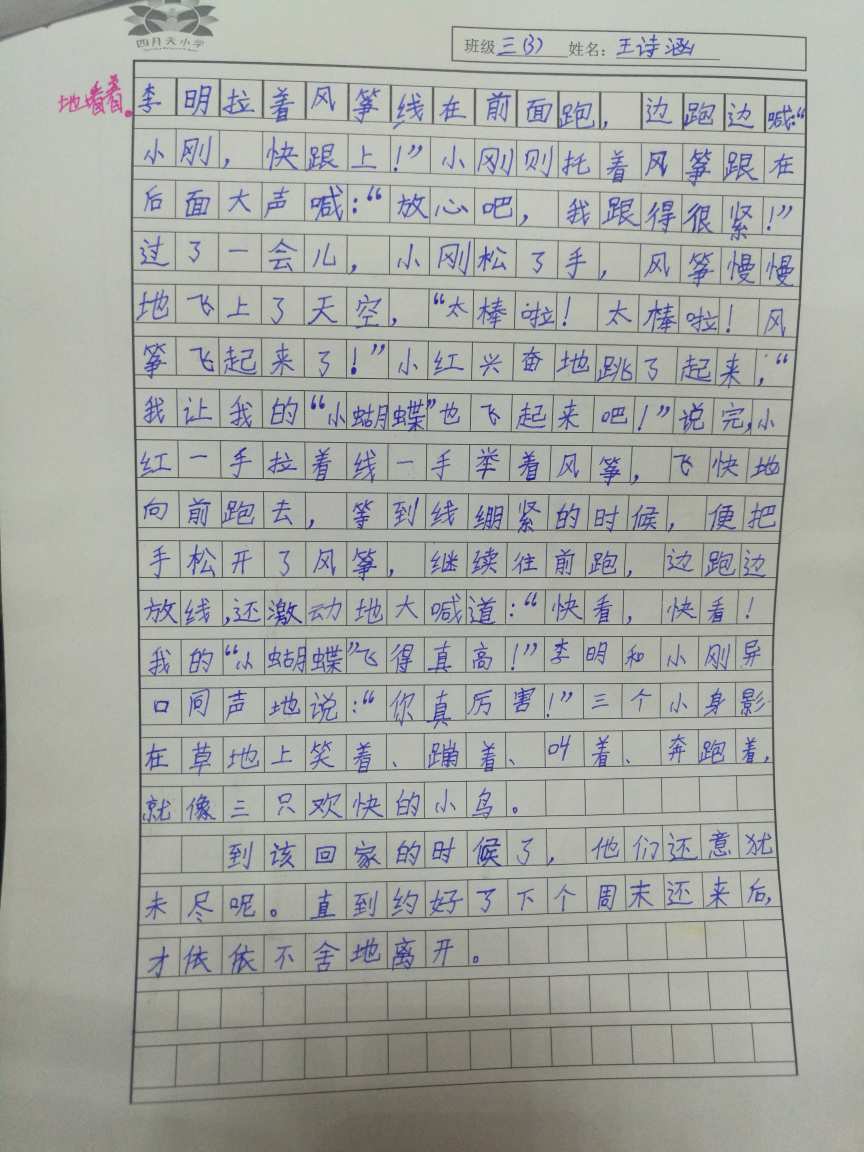 四月天小学
班级三(3) 姓名：王诗涵
地看着。
李明拉着风筝线在前面跑，边跑边喊：“
小刚，快跟上！”小刚则托着风筝跟在
后面大声喊：“放心吧，我跟得很紧！”
过了一会儿，小刚松了手，风筝慢慢
地飞上了天空，“太棒啦！太棒啦！风
筝飞起来了！”小红兴奋地跳了起来，“
我让我的“小蝴蝶”也飞起来吧！”说完，小
红一手拉着线一手举着风筝，飞快地
向前跑去，等到线绷紧的时候，便把
手松开了风筝，继续往前跑，边跑边
放线，还激动地大喊道：“快看，快看！
我的“小蝴蝶”飞得真高！”李明和小刚异
口同声地说：“你真厉害！”三个小身影
在草地上笑着、蹦着、叫着、奔跑着，
就像三只欢快的小鸟。
到该回家的时候了，他们还意犹
未尽呢。直到约好了下个周末还来后，
才依依不舍地离开。